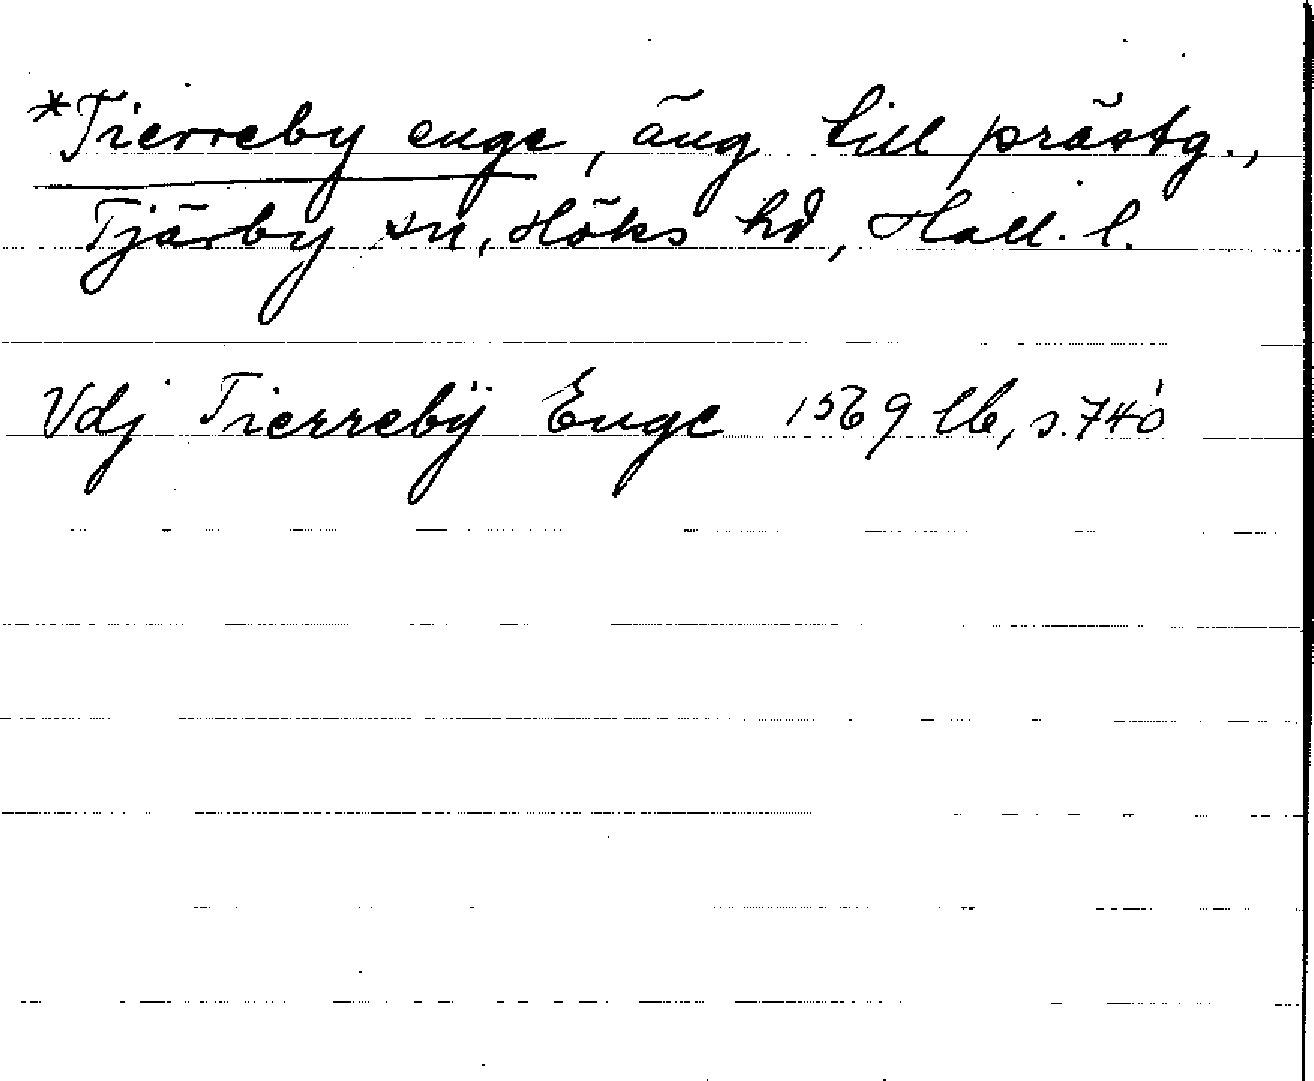 *Tierreby enge, äng till prästg.,
Tjärby sn, Höks hd, Hall. l.
Vdj Tierrebÿ Enge 1569 lb, s. 740